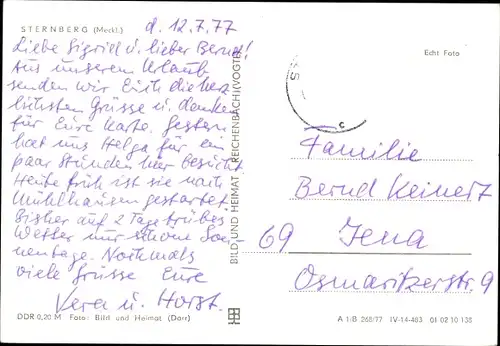 STERNBERG (Meckl.)
d. 12.7.77
Liebe Sigrid u. lieber Bernd!
Aus unserem Urlaub
senden wir Euch die herz
lichsten Grüsse u. danken
für Eure Karte. Gestern
hat uns Helga für ein
paar Stunden hier besucht
Heute früh ist sie nach
Mühlhausen gestartet.
Bisher auf 2 Tage trübes
Wetter nur schöne Son-
nentage. Nochmals
viele Grüsse Eure
Vera u. Horst.
DDR 0,20 M Foto: Bild und Heimat (Darr)
BILD UND HEIMAT REICHENBACH (VOGTL)
Echt Foto
Familie
Bernd Keinert
69 Jena
Osmaritzerstr. 9
A 1/B 268/77 IV-14-483 01 02 10 136